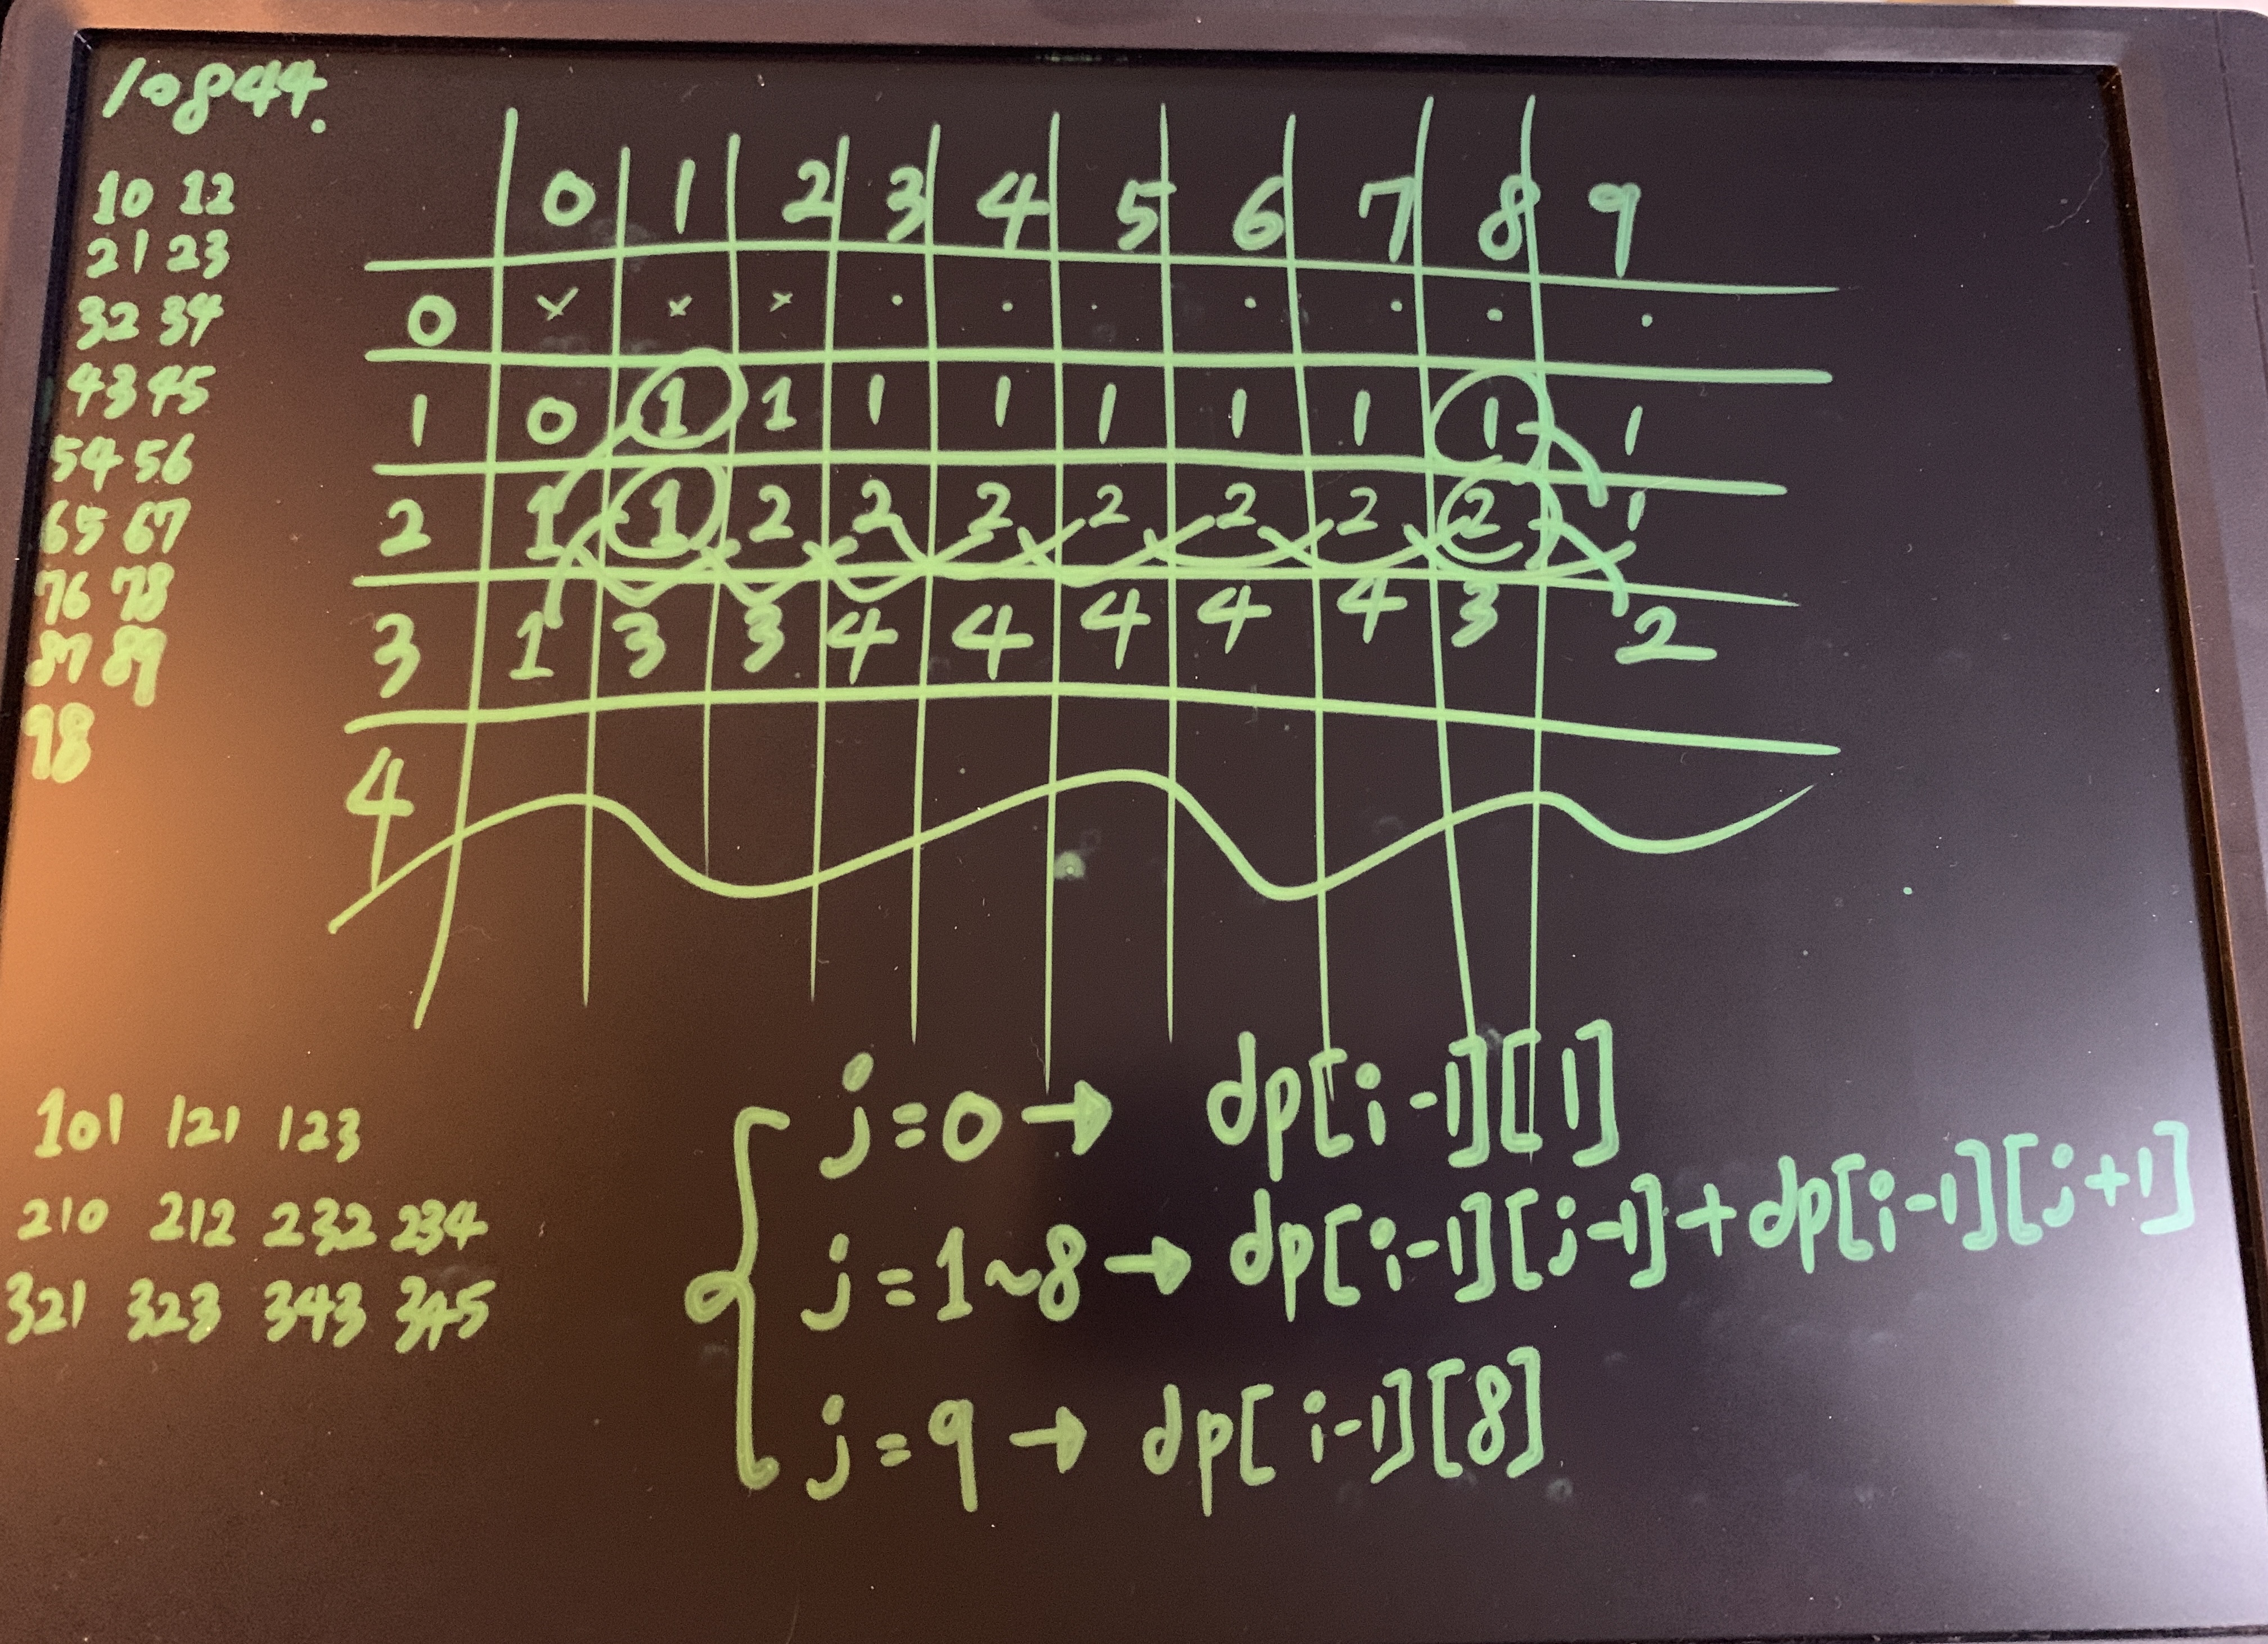 10844.
10 12
21 23
32 34
43 45
54 56
65 67
76 78
87 89
98
0 1 2 3 4 5 6 7 8 9
0 × × × · · · · · · ·
1 0 1 1 1 1 1 1 1 1 1
2 1 1 2 2 2 2 2 2 2 1
3 1 3 3 4 4 4 4 4 3 2
4
101 121 123
210 212 232 234
321 323 343 345
j=0 → dp[i-1][1]
j=1~8 → dp[i-1][j-1]+dp[i-1][j+1]
j=9 → dp[i-1][8]